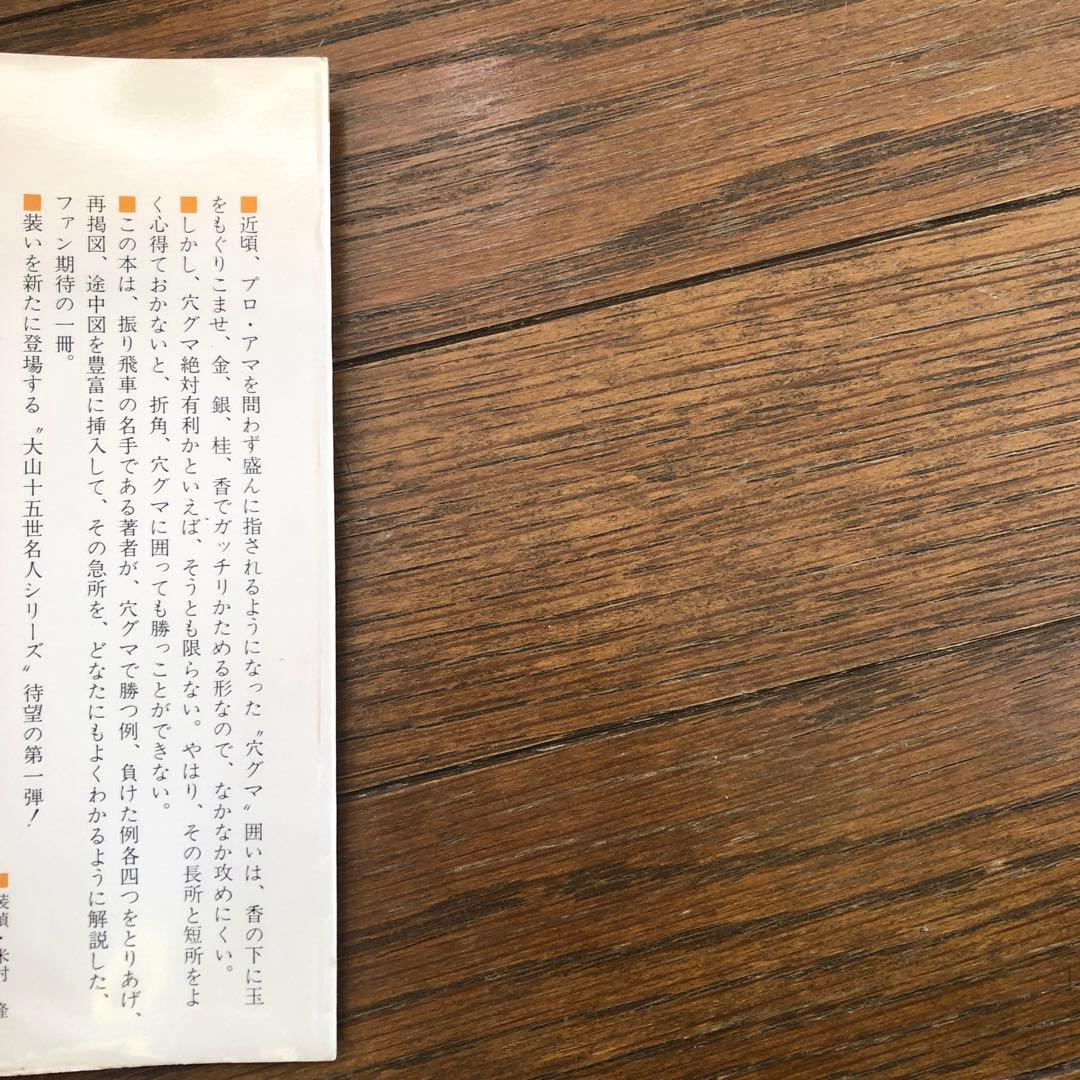 ■近頃、プロ・アマを問わず盛んに指されるようになった〝穴グマ〟囲いは、香の下に玉
をもぐりこませ、金、銀、桂、香でガッチリかためる形なので、なかなか攻めにくい。
■しかし、穴グマ絶対有利かといえば、そうとも限らない。やはり、その長所と短所をよ
く心得ておかないと、折角、穴グマに囲っても勝っことができない。
■この本は、振り飛車の名手である著者が、穴グマで勝つ例、負けた例各四つをとりあげ、
再掲図、途中図を豊富に挿入して、その急所を、どなたにもよくわかるように解説した、
ファン期待の一冊。
■装いを新たに登場する〝大山十五世名人シリーズ〟待望の第一弾！
■装幀・米村 隆